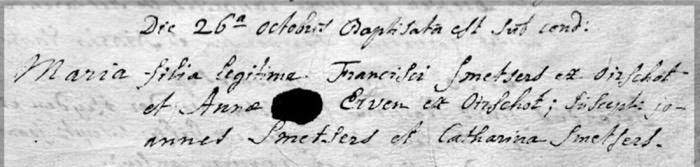 Die 26a octobris Baptisata est sub cond:
Maria filia legitima Francisci Smetsers ex Oirschot
et Annæ Erven ex Oirschot; suscep: jo-
annes Smetsers et Catharina Smetsers.